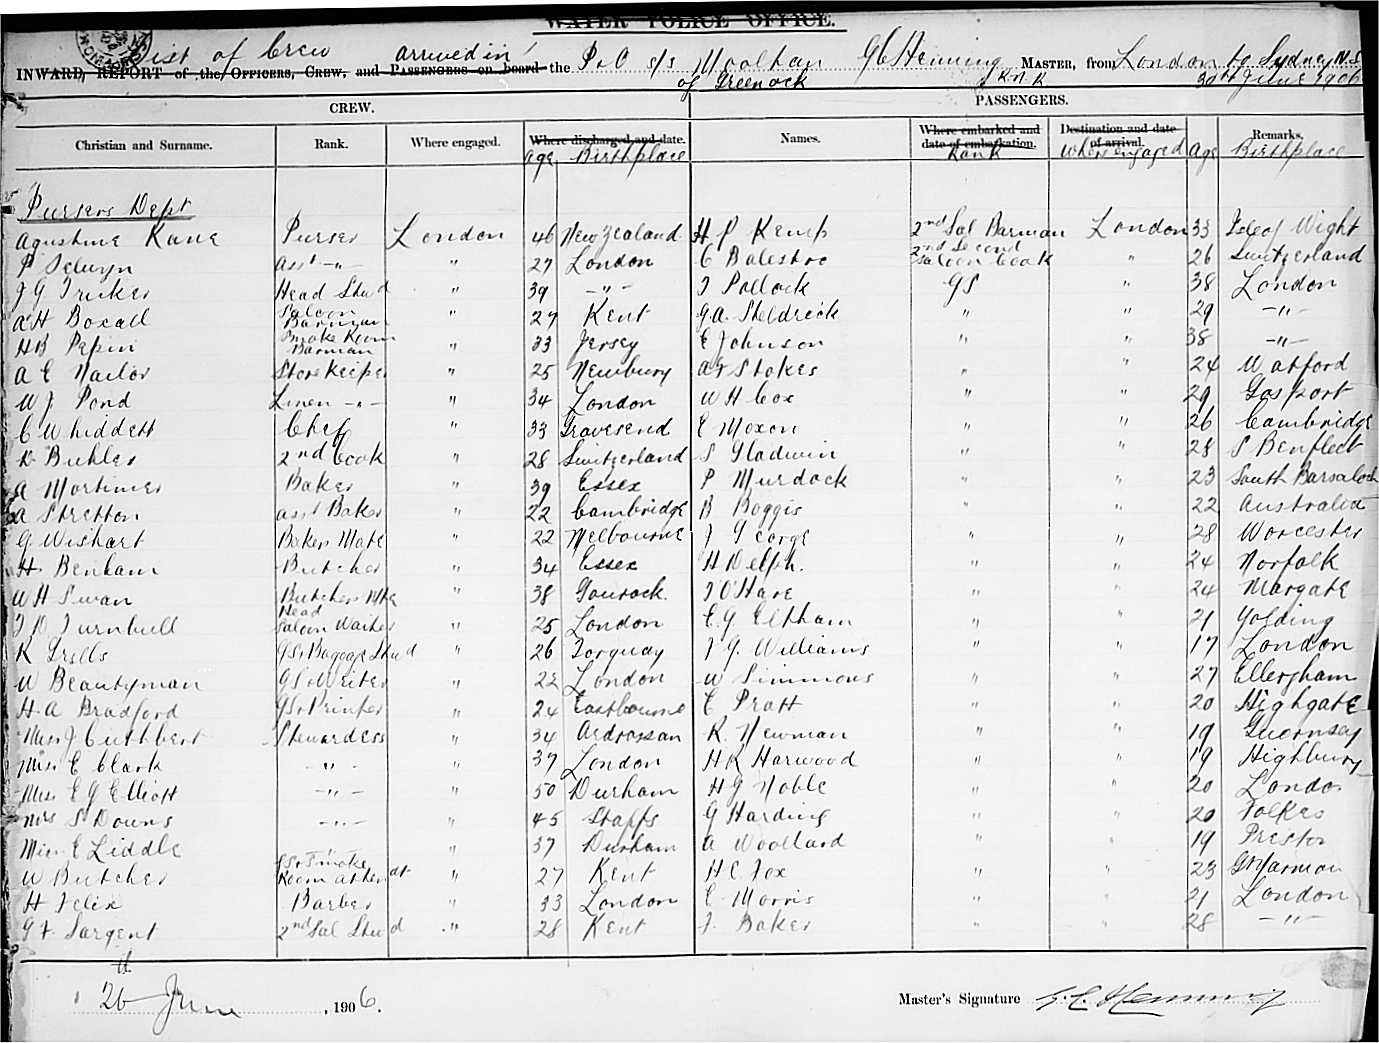 WATER POLICE OFFICE.
List of Crew arrived in
INWARD REPORT of the Officers, Crew, and Passengers on board the P&O s/s Mooltan G C Henning Master, from London to Sydney N.S
of Greenock R N R 30th June 1906
CREW. PASSENGERS.
Christian and Surname. Rank. Where engaged. Where discharged and date. Names. Where embarked and date of embarkation. Destination and date of arrival. Remarks.
age Birthplace Rank Where engaged age Birthplace
Pursers Dept
Agustine Kane Purser London 46 New Zealand H P Kemp 2nd Sal Barman London 33 Isle of Wight
P Selwyn asst -"- " 27 London C Balestro 2nd Second Saloon Cook " 26 Switzerland
J G Tricker Head Stwd " 39 -"- J Pollock GS " 38 London
A H Boxall Saloon Barman " 27 Kent G A Sheldrick " " 29 -"-
H B Pepin Smoke Room Barman " 33 Jersey E Johnson " " 38 -"-
A E Nailor Storekeeper " 25 Newbury A F Stokes " " 24 Watford
W J Pond Linen -"- " 34 London W H Cox " " 29 Gosport
C Whiddett Chef " 33 Gravesend E Moxon " " 26 Cambridge
Buhler 2nd Cook " 28 Switzerland S Gladwin " " 28 S Benfleet
A Mortimer Baker " 39 Essex P Murdock " " 23 South
A Stretton asst Baker " 22 Cambridge B Boggis " " 22 Australia
G Wishart Bakers Mate " 22 Melbourne J George " " 28 Worcester
H Benham Butcher " 34 Essex H Delph. " " 24 Norfolk
W H Swan Butchers Mte " 38 Gourock. J O'Hare " " 24 Margate
J D Turnbull Head Saloon Waiter " 25 London E G Eltham " " 21 Yolding
K Grills GS & Baggage Stwd " 26 Torquay J G Williams " " 17 London
W Beautyman GS & Writer " 22 London W Simmons " " 27 Ellergham
H A Bradford GS & Printer " 24 Eastbourne E Pratt " " 20 Highgate
Miss J Cuthbert Stewardess " 34 Ardrossan R Newman " " 19 Guernsey
Miss E Clark -"- " 37 London H R Harwood " " 19 Highbury
Miss E G Elliott -"- " 50 Durham H G Noble " " 20 London
Mrs S Downs -"- " 45 Staffs G Harding " " 20 Folkes
Miss E Liddle -"- " 37 Durham A Woollard " " 19 Preston
W Butcher GS & Smoke Room attendt " 27 Kent H C Fox " " 23 Gt Yarmou
H Felix Barber " 33 London E Morris " " 21 London
G F Sargent 2nd Sal Stwd " 28 Kent F Baker " " 28 -"-
26th June, 1906. Master's Signature G. C. Henning